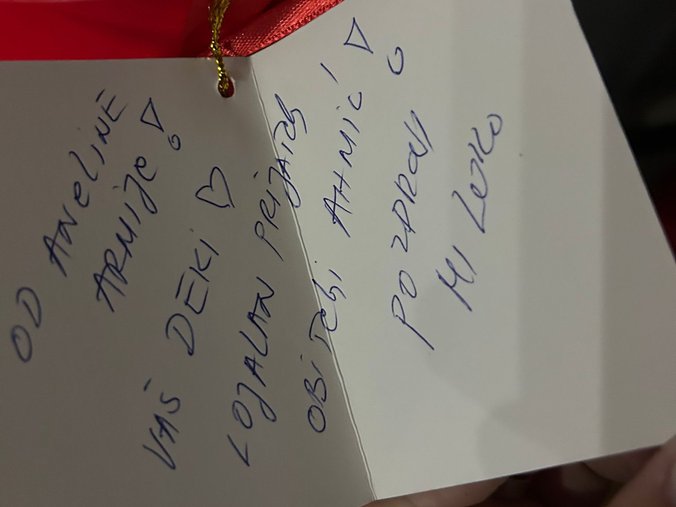 OD ANELINE
ARMIJE!
VAŠ DEKI ♡
LOJALAN PRIJATELJ
OBITELJI AHMIĆ!
POZDRAV
MI LEJKO